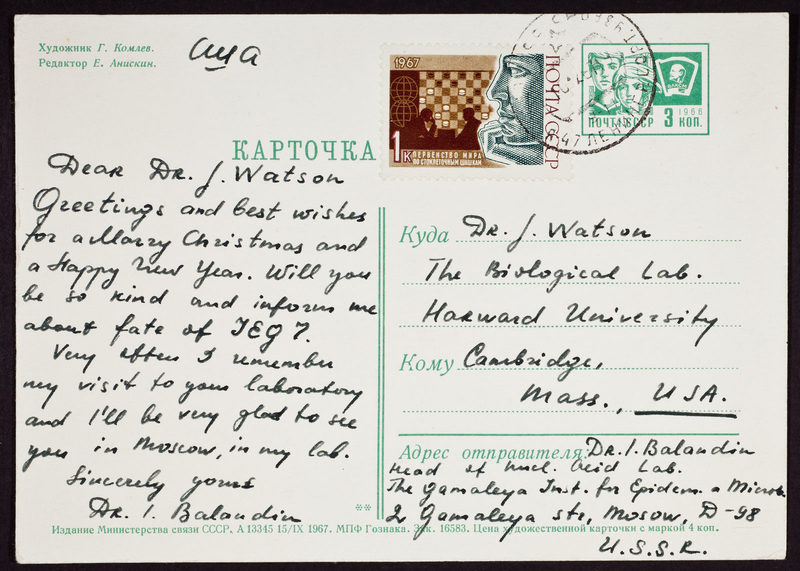 Художник Г. Комлев.
Редактор Е. Анискин.
США
1967
ПОЧТА СССР
1К
ПЕРВЕНСТВО МИРА
ПО СТОКЛЕТОЧНЫМ ШАШКАМ
ПОЧТА СССР
1966
3 КОП.
КАРТОЧКА
Dear Dr. J. Watson
Greetings and best wishes
for a Marry Christmas and
a Happy New Year. Will you
be so kind and inform me
about fate of JEG 7.
Very often I remember
my visit to your laboratory
and I'll be very glad to see
you in Moscow, in my lab.
Sincerely yours
Dr. I. Balandin
**
Куда Dr. J. Watson
The Biological Lab.
Harward University
Кому Cambridge,
Mass., USA.
Адрес отправителя: Dr. I. Balandin
Head of nucl. acid Lab.
The Gamaleya Inst. for Epidem. a Microb.
2 Gamaleya str, Moscow, D-98
U.S.S.R.
Издание Министерства связи СССР. А 13345 15/IX 1967. МПФ Гознака. Зак. 16583. Цена художественной карточки с маркой 4 коп.